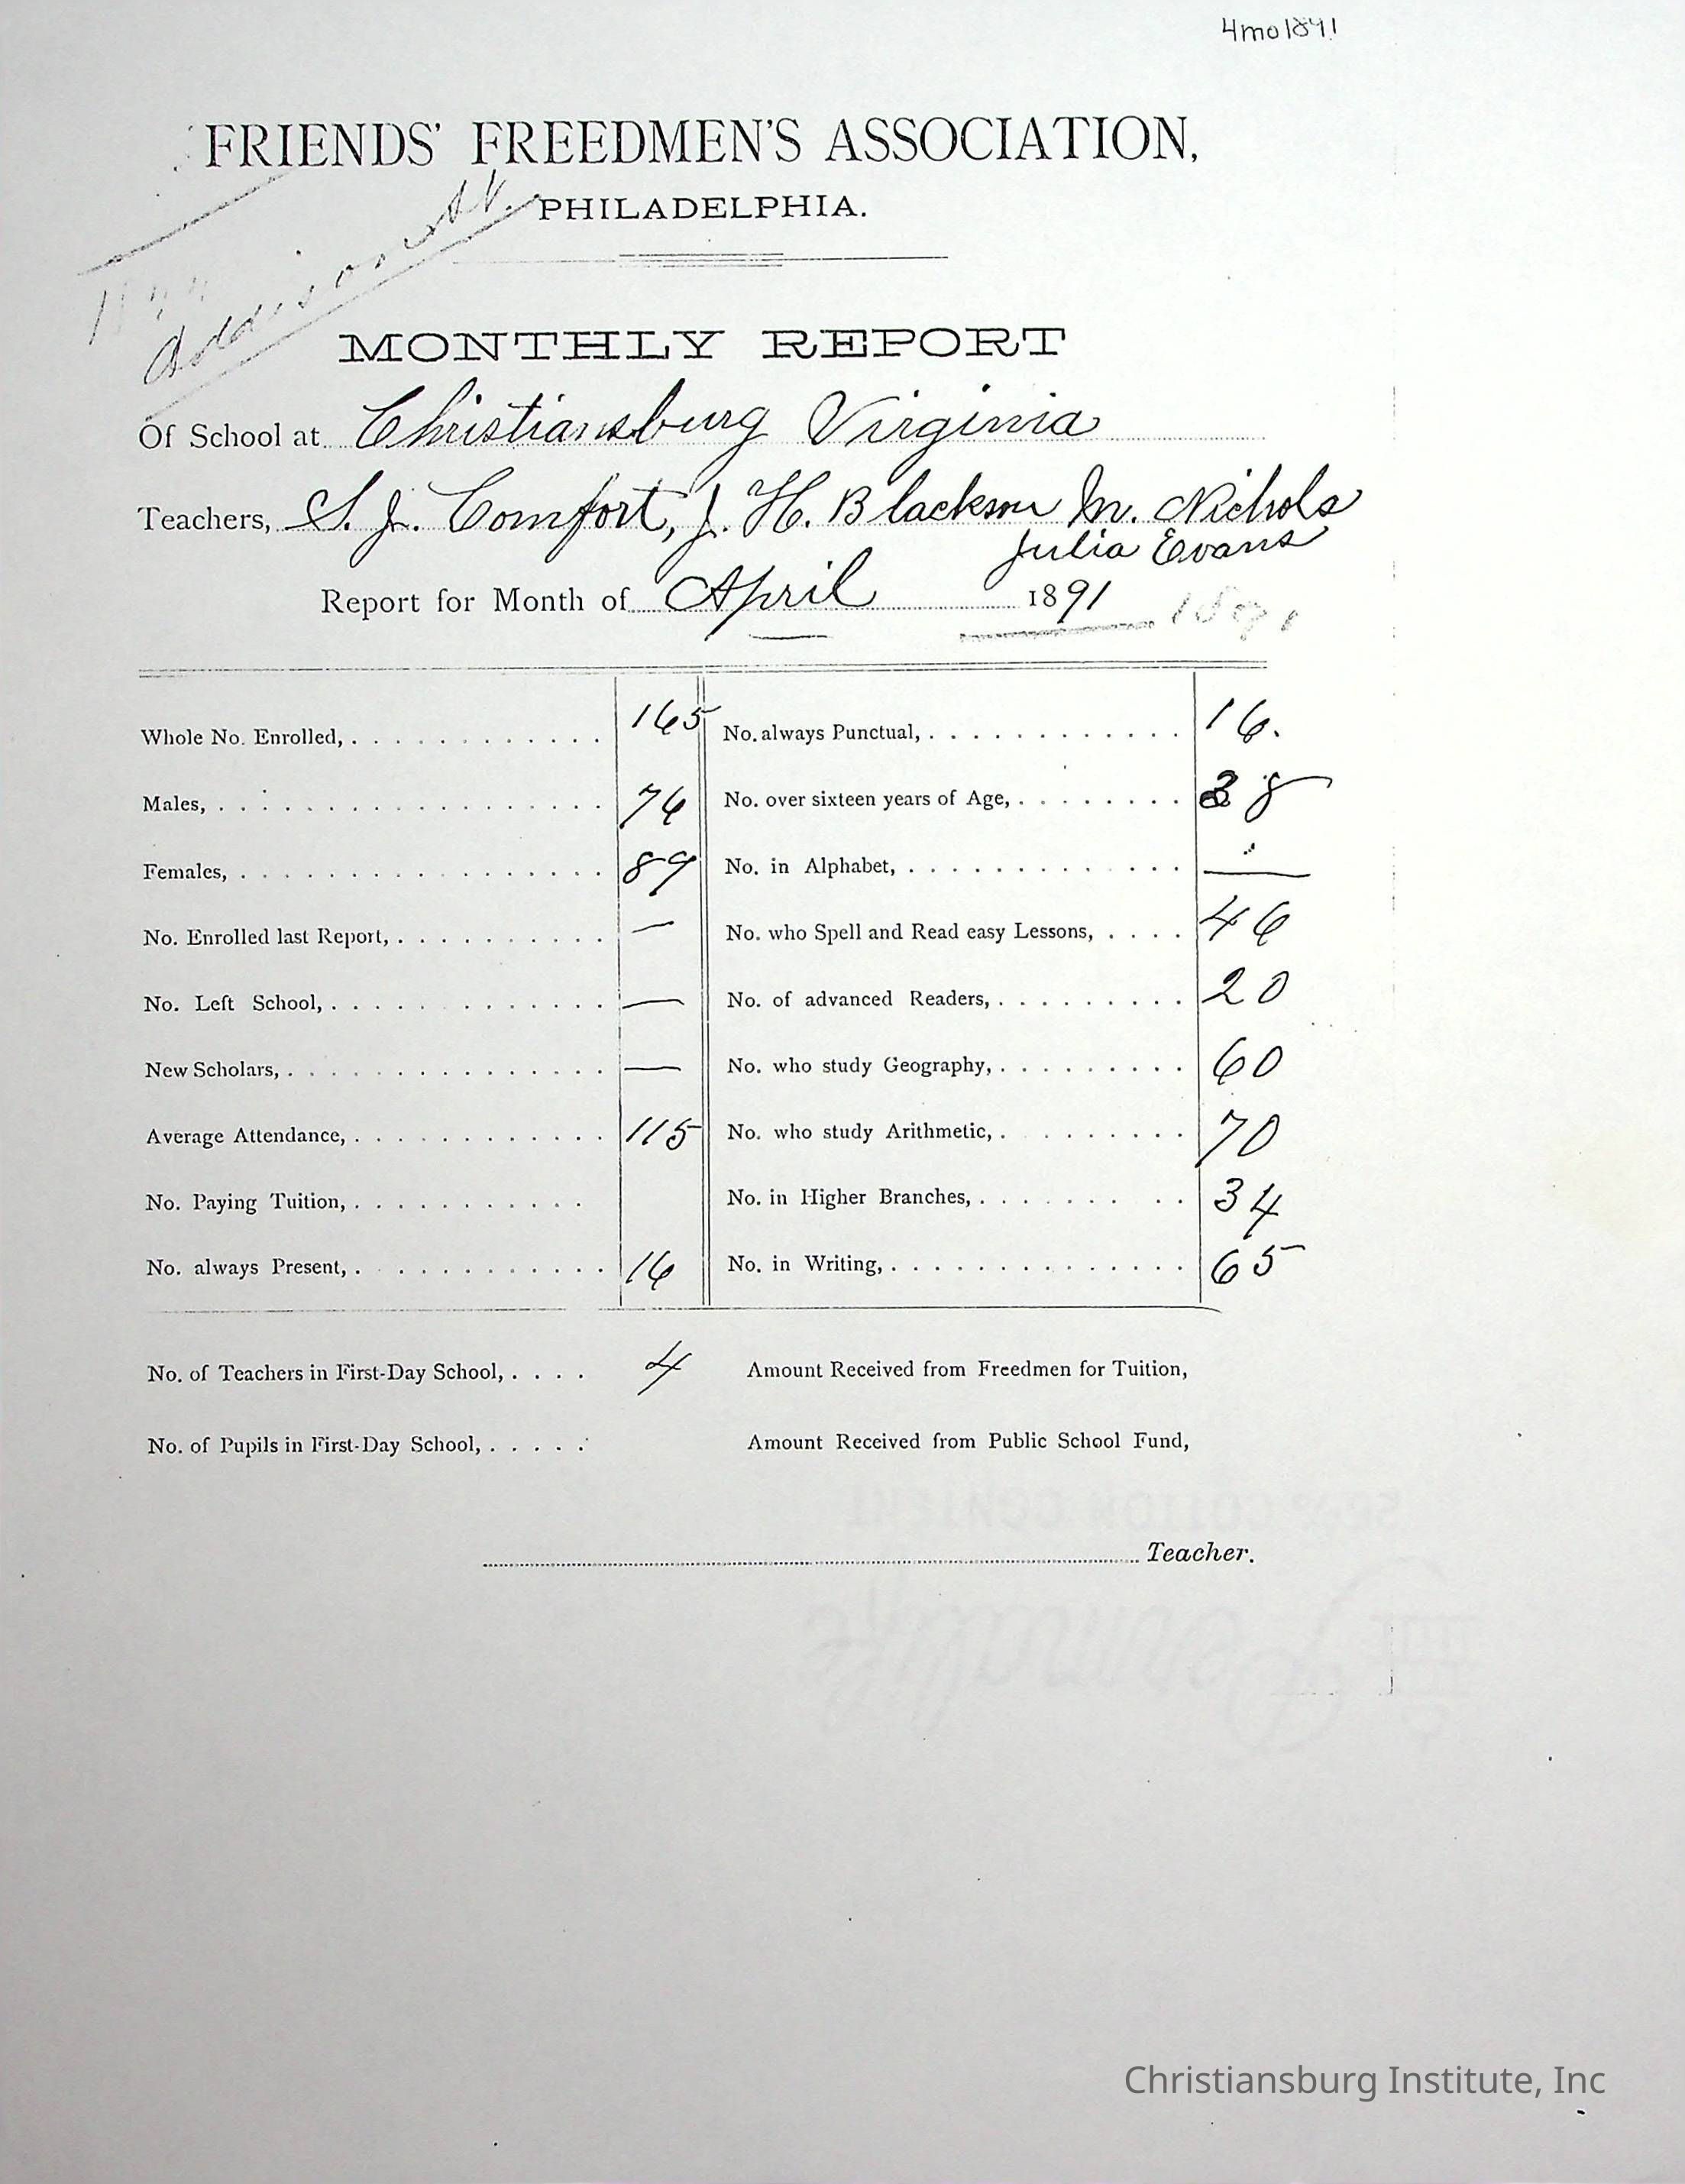 4mo1891
FRIENDS' FREEDMEN'S ASSOCIATION,
PHILADELPHIA.
Addison St.
MONTHLY REPORT
Of School at Christiansburg Virginia
Teachers, S. J. Comfort, J. H. Blackson M. Nichols
Julia Evans
Report for Month of April 1891 1891
Whole No. Enrolled, 165 No. always Punctual, 16.
Males, 76 No. over sixteen years of Age, 38
Females, 89 No. in Alphabet, —
No. Enrolled last Report, — No. who Spell and Read easy Lessons, 46
No. Left School, — No. of advanced Readers, 20
New Scholars, — No. who study Geography, 60
Average Attendance, 115 No. who study Arithmetic, 70
No. Paying Tuition, No. in Higher Branches, 34
No. always Present, 16 No. in Writing, 65
No. of Teachers in First-Day School, 4 Amount Received from Freedmen for Tuition,
No. of Pupils in First-Day School, Amount Received from Public School Fund,
50% COTTON CONTENT
Teacher.
Permalife
Christiansburg Institute, Inc